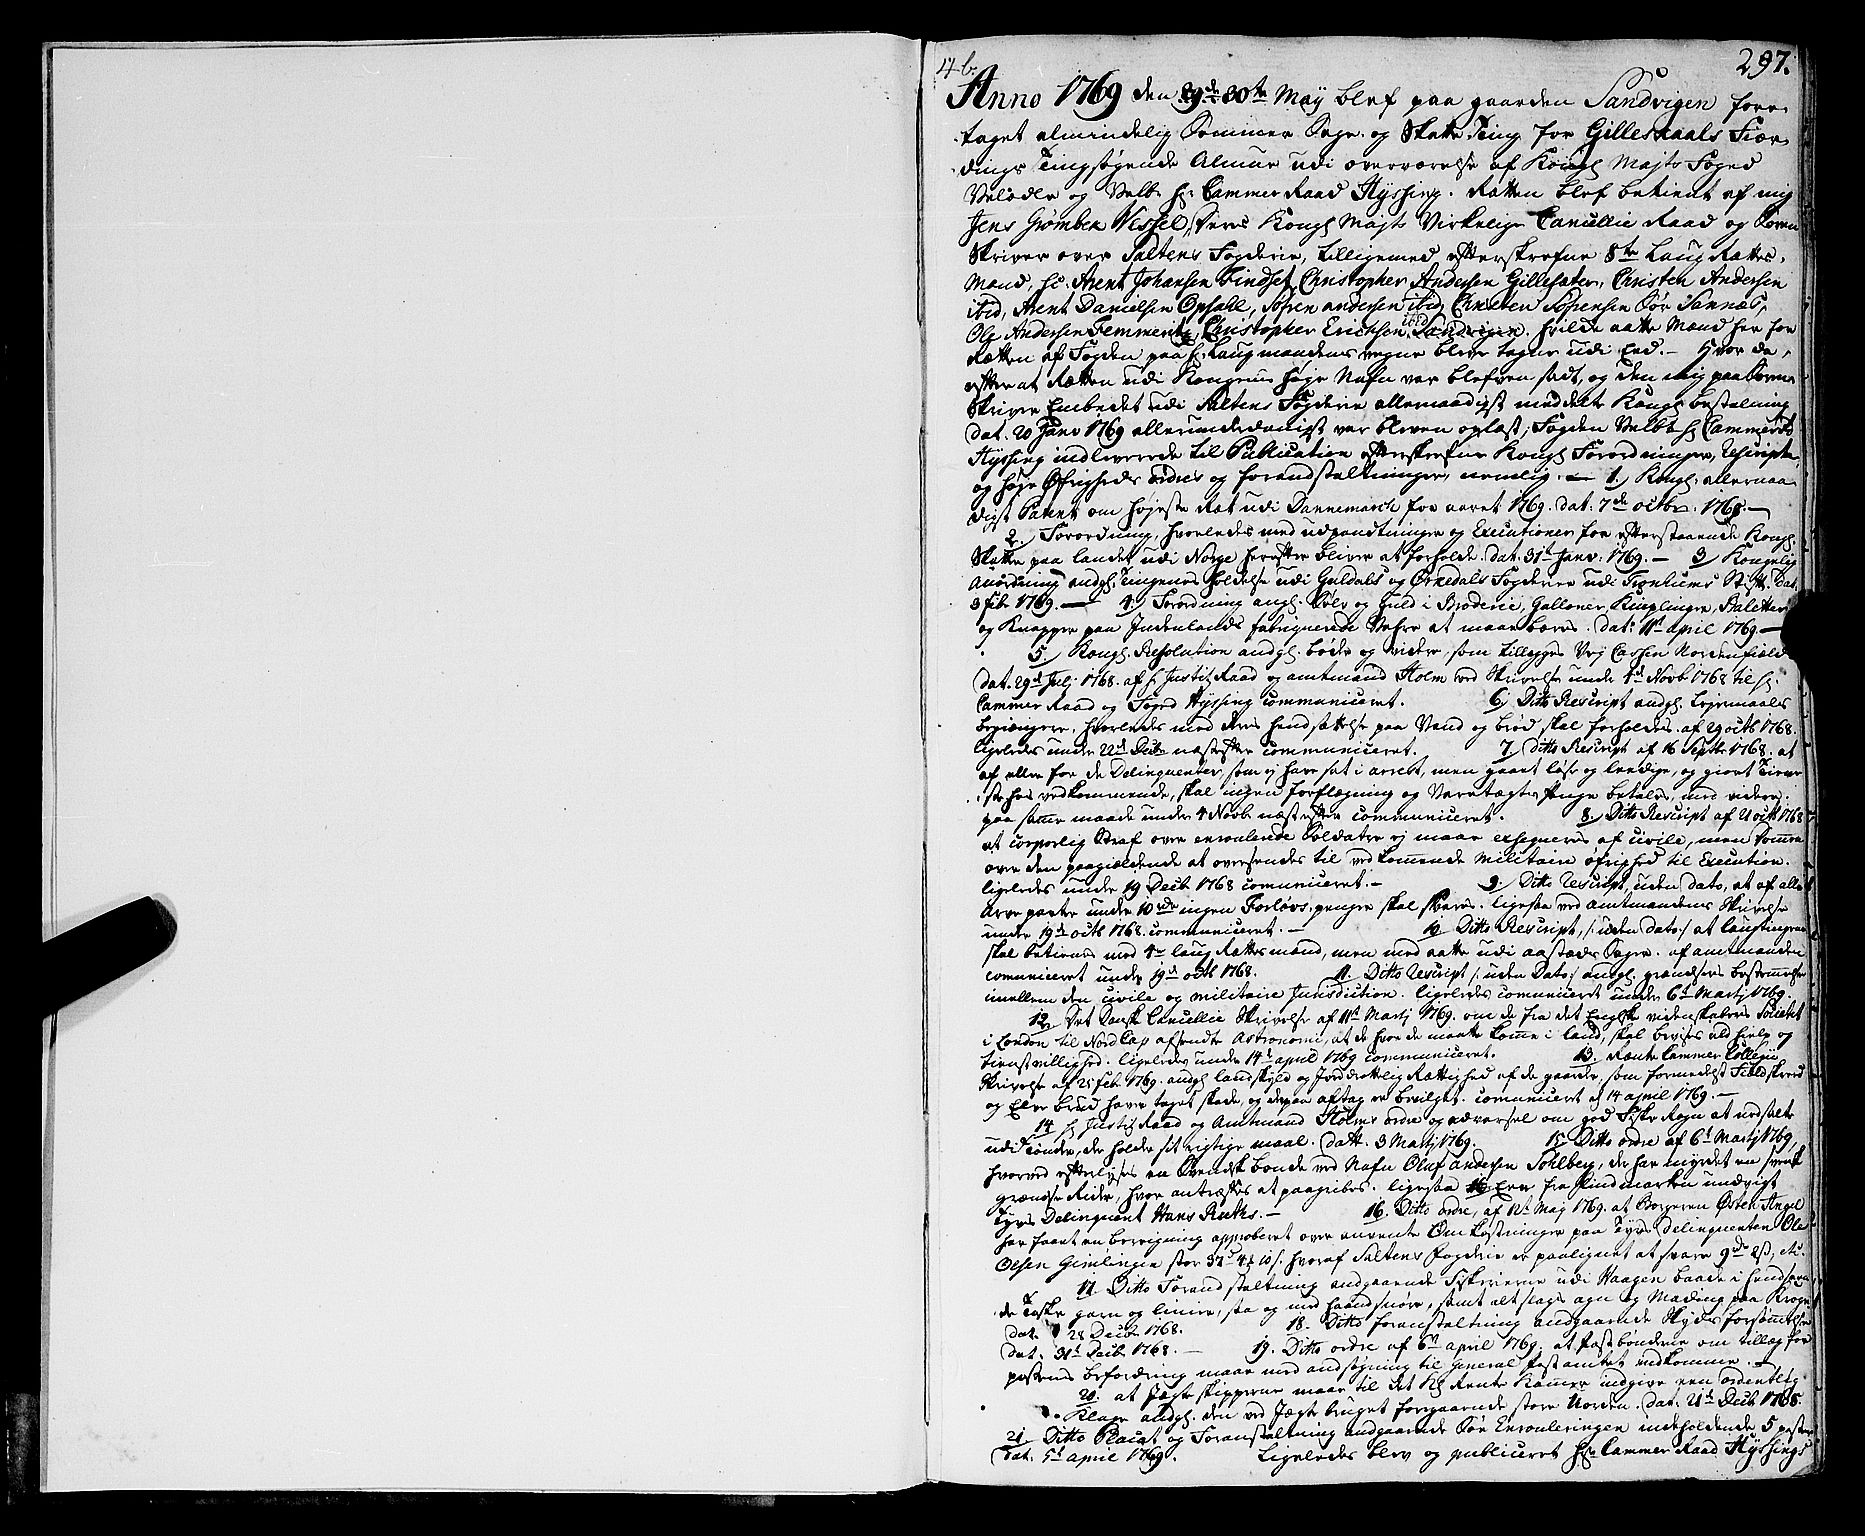 4b. 297.
Anno 1769 den 29de 30te Maÿ blef paa gaarden Sandvigen fore-
taget almindelig Sommer Sage- og Skatte Ting for Gilleskaals Fiær-
dings Tingsøgende Almue udi overværelse af Kongl Majts Foged
Velædle og Velbr. hr Cammer Raad Hyssing. Retten blef betient af mig
Jens Grømber Wessel, Deres Kongl Majts Virkelige Cancellie Raad og Soren
Skriver over Saltens Fogderie, tilligemed efterskrefne 8te Laug Rættes
Mænd, sc: Arent Johansen Findset, Christopher Andersen Gillesæter, Christen Andersen
ibid, Arent Danielsen Opsall, Søren Andersen ibid, Christen Sørensen Sør Sannæs,
Ole Andersen Femmeriis, Christopher Erichsen ibid Sandvigen. hvilke aatte Mænd her for
Rætten af Fogden paa hr Laugmandens vegne bleve tagne udi Eed. - Hvor da,
efter at Rætten udi Kongens høje Nafn var blefven sadt, og den mig paa Soren
Skriver Embedet udi Saltens Fogderie allernaadigst meddelte Kongl bestalning
dat. 20 Janv 1769 allerunderdanigst var bleven oplæst, Fogden Velbr hr Cammerrd
Hyssing indleverede til Publication efterskrefne Kongl Forordninger, Rescripter,
og høje Øfrigheds ordres og foranstaltninger, nemlig. - 1. Kongl. allernaa
digst Patent om højeste Ræt udi Dannemarck for aaret 1769. dat: 7de octbr. 1768. -
2. Forordning, hvorledes med udpandtninger og Executioner for efterstaaende Kongl.
Skatter paa landet udi Norge herefter bliver at forholde. dat. 31t Janv. 1769. - 3 Kongelig
Anordning andgl. Tingenes holdelse udi Guldals og Ørkedals Fogderier udi Tronhiems Stift. Dat.
3 Febr 1769. - 4. Forordning angl. Sølv og Guld i Broderie, Galloner, Kniplinger, Paletter
og Knapper paa Indenlands fabriquerede Vahre at maae bæres. dat: 11t april 1769. -
5. Kongl. Resolution andgl. bøder og videre, som tillegges Vej Cassen Nordenfields
dat. 29d Julj 1768. af hr Justitz Raad og amtmand Holm ved Skrivelse under 1d Novb 1768 til hr.
Cammer Raad og Foged Hyssing communiceret. 6. Ditto Rescript andgl. Lejermaals
begiængere, hvorledes med deres hensættelse paa Vand og brød skal forholdes. af 29 octb 1768.
ligeledes under 22d Decbr næstefter communiceret. 7. Ditto Rescript af 16 Septbr 1768. at
af eller for de Delinquenter, som ej have sat i arrest, men gaaet løse og leedige, og giort Tiene-
ste hos vedkommende, skal ingen forflegning og Varetægts Penge betales, med videre.
paa samme maade under 4 Novb næstefter communiceret. 8. Ditto Rescript af 21 octb 1768
at corporlig Straf over enroulerede Soldater ej maae exseqveres af civile, men Dommen
over den paagieldende at oversendes til vedkommende militaire øfrighed til Execution.
ligeledes under 19 Decb 1768 comuniceret. - 9. Ditto Rescript, uden dato, at af alle
Arve parter under 10 rdr ingen Forlovs penge skal svares. ligesaa ved Amtmandens Skrivelse
under 19d octb 1768. communiceret. - 10. Ditto Rescript, /: uden dato :/ at Laugtingene
skal betienes med 4re laug Rættes mænd, men med aatte udi aastæds Sager. af amtmanden
comuniceret under 19d octb 1768. 11. Ditto Rescript /: uden Dato :/ andgl. grændsens bestemmelse
imellem den civile og militaire Jurisdiction. ligeledes comuniceret under 6d Martj 1769.
12. Det Danske Cancellie Skrivelse af 11t Martj 1769. om de fra det Engelske videnskabers Societet
i London til Nord Cap afsendte Astronomi, at de hvor de maatte komme i land, skal bevises all hielp og
tienstvillighed. ligeledes under 14d april 1769 communiceret. 13. Rente Cammer Collegii
Skrivelse af 25 Febr 1769. andgl. landskyld og Jorddrottlig Rættighed af de gaarde, som formedelst Field Skreed
og Elve brud have taget skade, og derpaa aftag er bevilget. comuniceret d 14 april 1769. -
14 hr Justitz Raad og Amtmand Holms ordre og advarsel om god Fiske Rogn at nedsalte
udi Tønder, der holder sit rigtige maal. datt. 3 Martj 1769. 15. Ditto ordre af 6t Martj 1769,
hvorved efterlyses en Svensk bonde ved Nafn Oluf Andersen Sohlberg, der har myrdet en svensk
grændse Rider, hvor antræffes at paagribes. ligesaa Een fra Findmarken undvigt
Tyvs Delinquent Hans Ruths. - 16. Ditto ordre, af 12t Maj 1769. at Borgeren Østen Angel
har faaet en beregning approberet over anvente Omkostninger paa Tyvs delinquenten Ole
Olsen Gimlingen stor 37d 4# 10s. hvoraf Saltens fogderie er paalignet at svare 9de 2s, etc.
17. Ditto Forandstaltning andgaaende Fiskerierne udi Vaagen baade i henseende
de Torske garn og linier, saa og med haandsnøre, samt alt slags agn og Mading paa Kroge
dat. 28 Decb 1768. 18. Ditto foranstaltning andgaaende Skyds forsømmelse
dat. 31t Decb 1768. - 19. Ditto ordre af 6t april 1769, at post bønderne om tillæg for
postens befordring maae med andsøgning til General post amtet indkomme. -
20. at Jægte skipperne maae til det Kgl Rente Kammer indgive een ordentlig
Klage andgl. den ved Jægte bruget foregaaende store Uorden. dat. 21d Decb 1768.
21 Ditto Placat og Foranstaltning andgaaende Søe Enrouleringen indeholdende 5 poster
dat. 5t april 1769. Ligeledes blev og publiceret hr Cammer Raad Hyssings